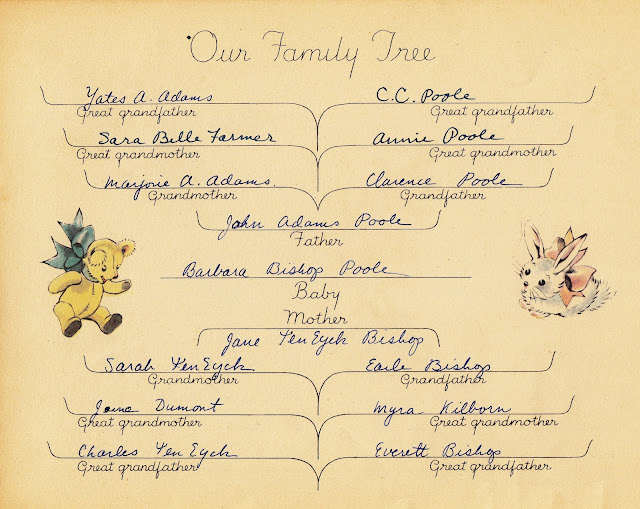 Our Family Tree
Yates A. Adams C.C. Poole
Great grandfather Great grandfather
Sara Belle Farmer Annie Poole
Great grandmother Great grandmother
Marjorie A. Adams. Clarence Poole
Grandmother Grandfather
John Adams Poole
Father
Barbara Bishop Poole
Baby
Mother
Jane Ten Eyck Bishop
Sarah Ten Eyck Earle Bishop
Grandmother Grandfather
Dumont Myra Kilborn
Great grandmother Great grandmother
Charles Ten Eyck Everett Bishop
Great grandfather Great grandfather